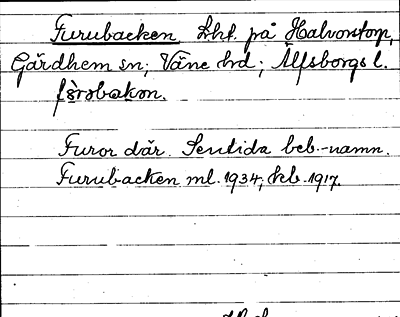 Furubacken Lht. på Halvorstorp,
Gärdhem sn; Väne hd; Älfsborgs l.
Furor där. Sentida beb.-namn.
Furubacken ml. 1934, kb. 1917.